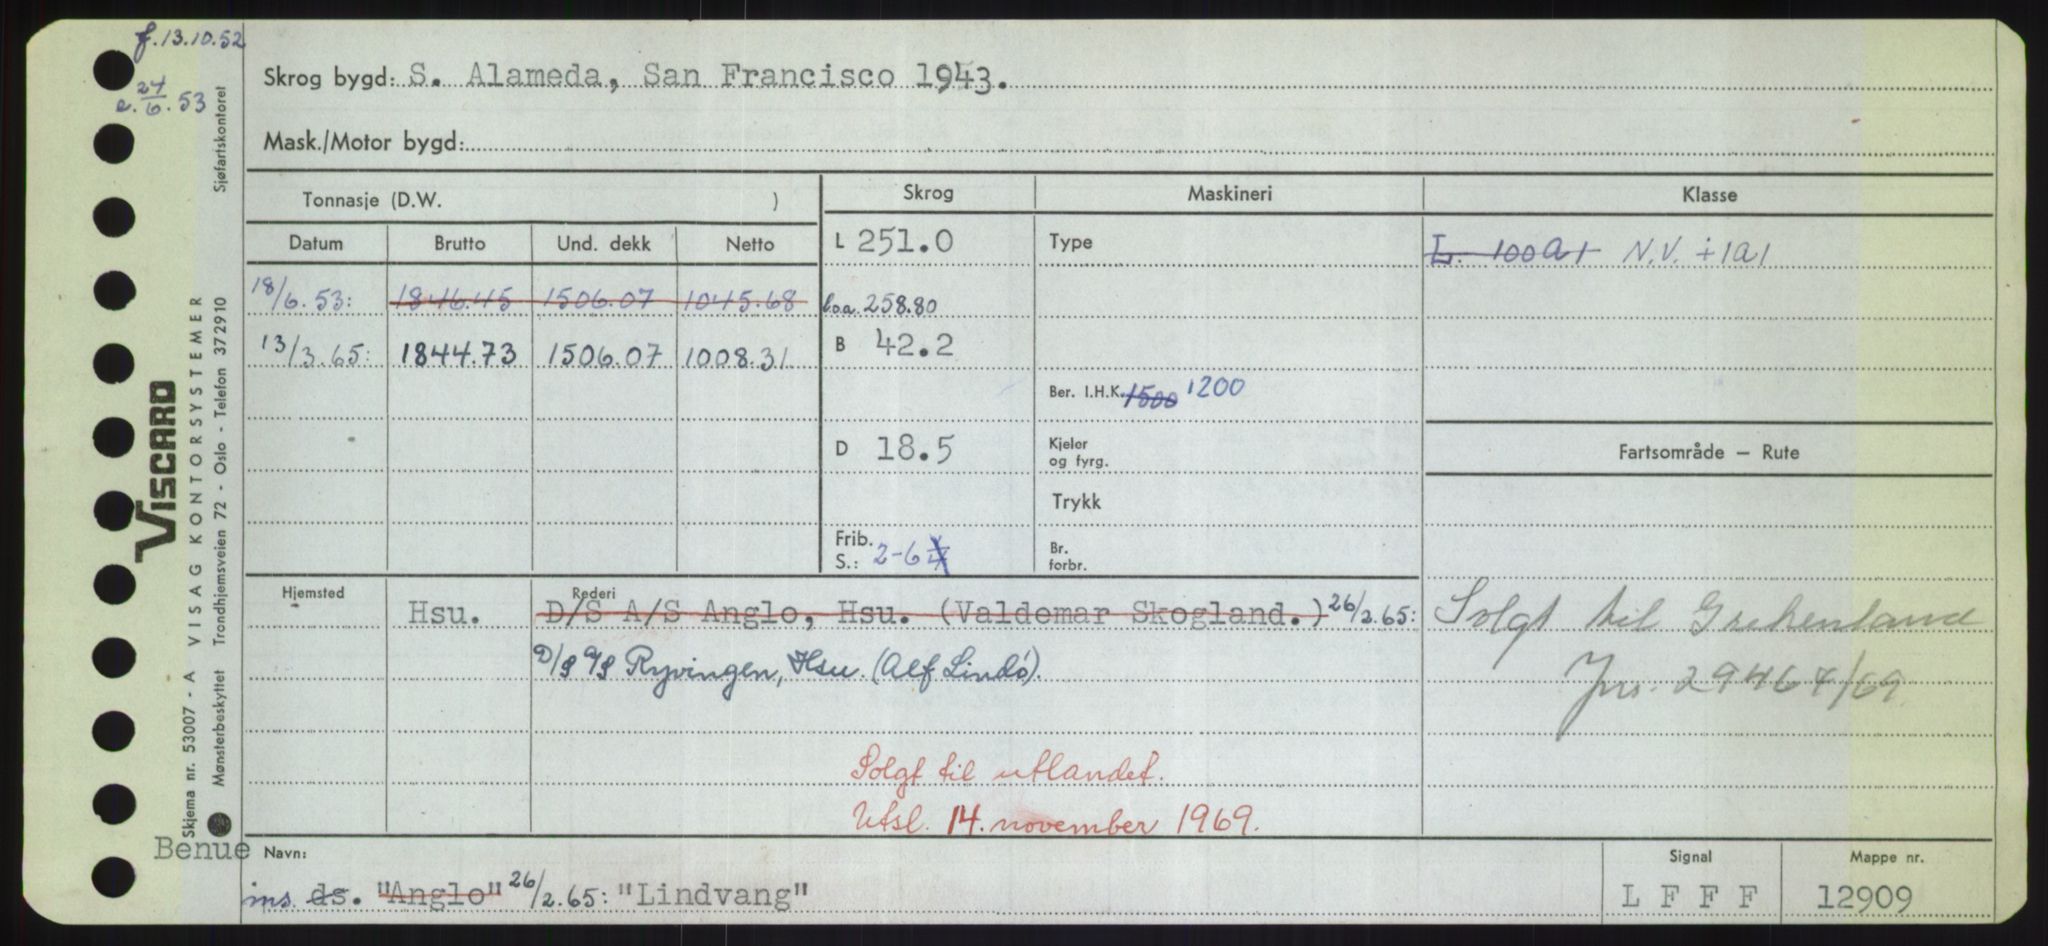 f. 13.10.52
e. 24/6. 53
Sjøfartskontoret
Skrog bygd: S. Alameda, San Francisco 1943.
Mask./Motor bygd:
Tonnasje (D.W. )
Skrog
Maskineri
Klasse
Datum Brutto Und. dekk Netto
L 251.0
Type
L. 100A1 N.V. +1A1
18/6.53: 1846.45 1506.07 1045.68
l.o.a. 258.80
13/3.65: 1844.73 1506.07 1008.31
B 42.2
Ber. I.H.K. 1500 1200
D 18.5
Kjeler
og fyrg.
Fartsområde — Rute
Trykk
Frib.
S.: 2-6
Br.
forbr.
Hjemsted
Rederi
Hsu. D/S A/S Anglo, Hsu. (Valdemar Skogland.) 26/2.65:
D/S A/S Ryvingen, Hsu. (Alf Lindø).
Solgt til Grekenland
Jnr. 29464/69.
Solgt til utlandet.
Utsl. 14. november 1969.
Benue
Navn:
Signal
Mappe nr.
ms. ds. "Anglo" 26/2.65: "Lindvang"
L F F F
12909
VISCARD
VISAG KONTORSYSTEMER
Skjema nr. 53007 - A
Mønsterbeskyttet Trondhjemsveien 72 - Oslo - Telefon 372910